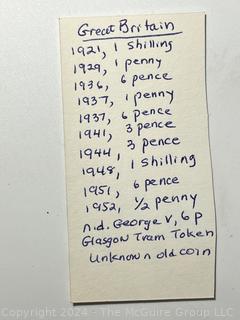 Great Britain
1921, 1 shilling
1929, 1 penny
1936, 6 pence
1937, 1 penny
1937, 6 pence
1941, 3 pence
1944, 3 pence
1948, 1 shilling
1951, 6 pence
1952, 1/2 penny
n.d. George V, 6 p
Glasgow Tram Token
Unknown old coin
Copyright 2024 - The McGuire Group LLC